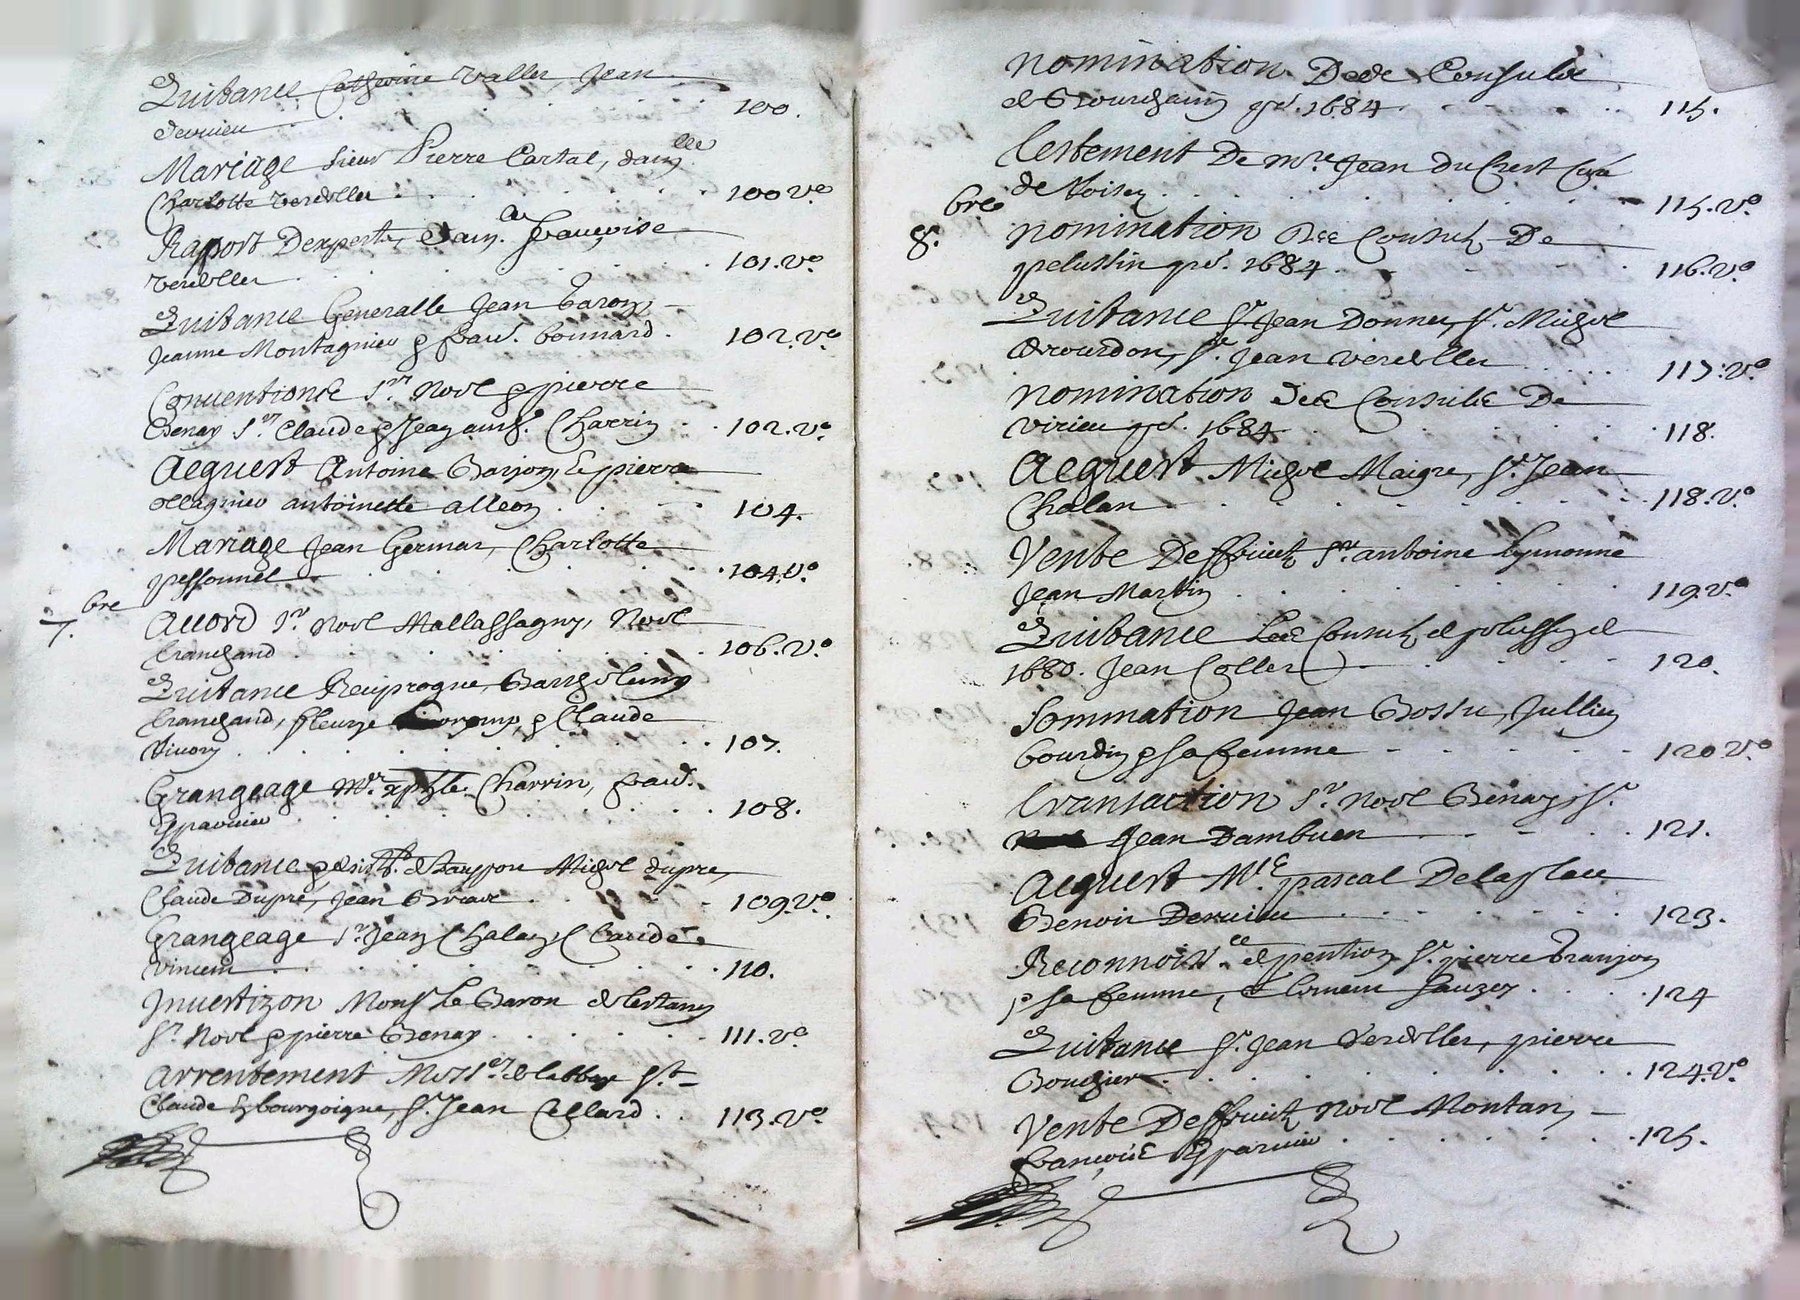 Quitance Catherine Vallet, Jean
dervieu . . . 100.
Mariage sieur Pierre Cartal, dam.lle
Charlotte verdellet . . . 100 v.o
Raport Dexperts, dam.lle francoise
verdellet . . . 101. v.o
Quitance Generalle Jean Baron,
Jeanne Montagnier & franc. bonnard . 102. v.o
Conuentions S.r Noel & pierre
Benay S.r Claude & Jean Charrin . . 102. v.o
Acquest Antoine Barjon, & pierre
ollagnier antoinette alleon . . . 104.
Mariage Jean Germar, Charlotte
pessonnel . . . 104. v.o
7.bre
Accord S.r Noel Mallassagny, Noel
tranchand . . . 106. v.o
Quitance Reciproque, Barthelemy
tranchand, fleurye & Claude
Vincon . . . 107.
Grangeage M.r xphle Charrin, franc.
Gparuier . . . 108.
Quitance Michel dupre,
Claude Dupre, Jean . . . 109. v.o
Grangeage S.r Jean Chalan, Claude
Vincent . . . 110.
Juuestizon Mons.r Le Baron de lestang
S.r Noel & pierre Benay . . . 111. v.o
Arrentement Mess.er de labbay S.t
Claude en bourgoigne, S.r Jean Cellard . . 113. v.o
nomination De de Consulz
de Bourchanin p.r 1684 . . . 115.
testement De M.re Jean Du Crest Curé
de . . . 115. v.o
8.bre
nomination Des Consulz De
pelussin p.r 1684 . . . 116. v.o
Quitance S.r Jean Donnet, S.r Michel
Bourdon, S.r Jean verdellet . . . 117. v.o
nomination des Consulz De
virieu p.r 1684 . . . 118.
Acquest Michel Maigre, S.r Jean
Chalan . . . 118. v.o
Vente De ffruictz S.r antoine
Jean Martin . . . 119. v.o
Quitance Les Consulz de
1680. Jean Collet . . . 120.
Sommation Jean Bossu, Jullien
bourdin & sa femme . . . 120 v.o
transaction S.r Noel Benay, S.r
Jean Dambuen . . . 121.
Acquest M.re pascal Delaplace
Benoit Dervieu . . . 123.
Reconnois.ce de pention S.r pierre Granjon
& sa femme, Clement Sauzey . . . 124
Quitance S.r Jean Verdellet, pierre
Bouchier . . . 124. v.o
Vente De ffruictz Noel Montan,
francois Gparuier . . . 125.